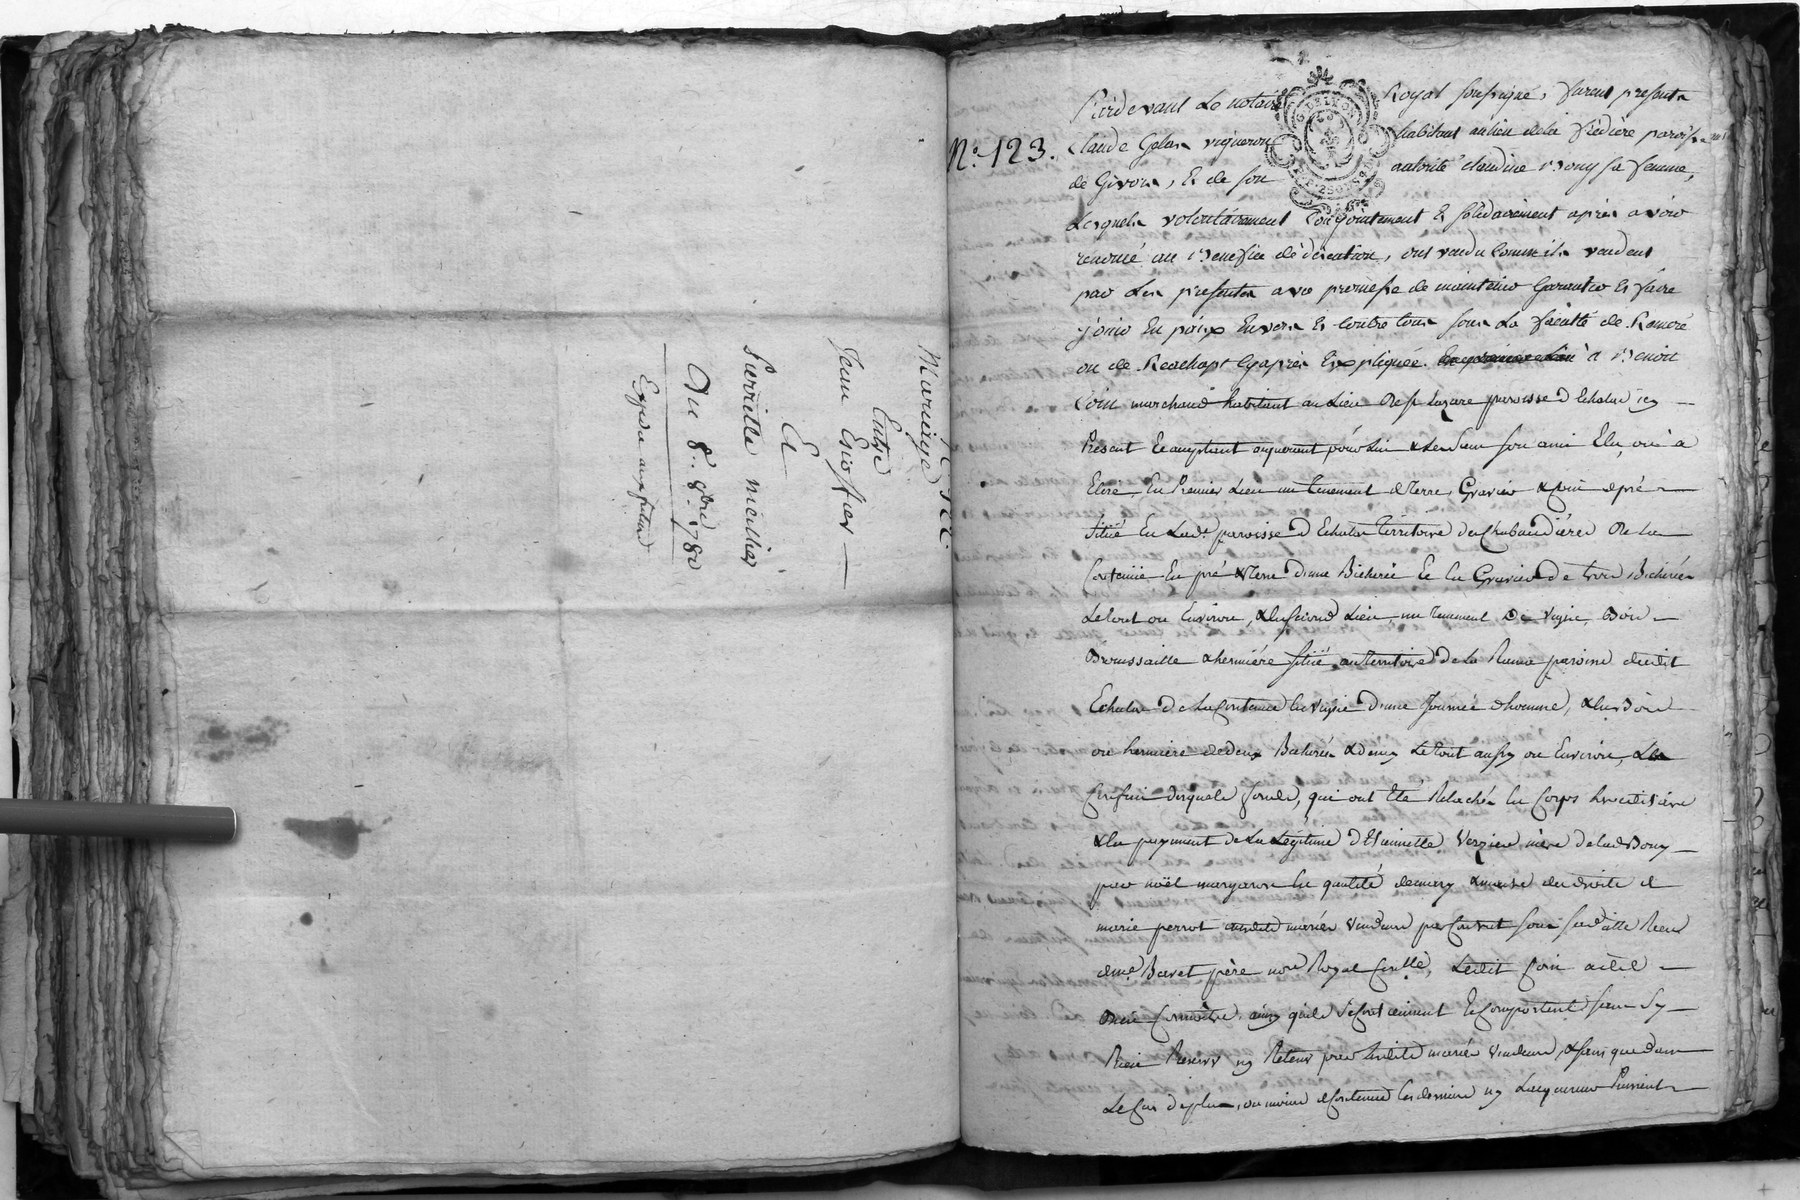 Mariage
Entre
Jean Esioffier
Et
Pierrette micillier
Du 8. 8bre 1780
Expedié aux futurs
N.º 123.
Pardevant Le notaire Royal soussigné, furent presents
Claude Gelas vigneron habitant au lieu de la fredière paroisse
de Givors, Et de son autorité claudine Bony sa femme,
Lesquels volontairement Conjointement Et solidairement après avoir
renoncé au Benefice de discution, ont vendu Comme ils vendent
par Les presentes avec promesse de maintenir Garantir Et faire
jouir En paix Envers Et Contre tous sous La faculté de Rémeré
ou de Reachapt Cy après Expliquée à Benoit
Coin marchand habitant au Lieu de st Lazare paroisse d'Echalas icy
Présent Et acceptant acquerant pour Lui & Lendeur son ami Elu, ou à
Elire, En Premier Lieu un Tenement de Terre, Gravier & pré
Situé En Lade. paroisse d'Echalas Territoire des Chabaudières de la
Contenue En pré & Terre d'une Bicherée Et le Gravier de trois Bicherées
Le tout ou Environ, & En second Lieu, un Tenement De Vigne, Bois
Broussaille & hermière situé au Territoire De La Rama paroisse dudit
Echalas De La Contenue la vigne D'une Journée d'homme, & Les Bois
ou hermière de deux Bicherées & demy Le tout aussy ou Environ,
Confins desquels fonds, qui ont Eté Relachés En Corps hereditaire
& En payement De La Légitime d'Etiennette Verzieu mère de lade Bony
par noël margaron En qualité de mary & maitre des droits de
marie perrot mariés Vendeurs par Contrat sous sa datte Receu
dme. Barret père nore Royal Ledit Coin a dit
Bien Connoitre, ainsy qu'ils s'Extendent Et Comportent sans s'y
Rien Reserver ny Retenir par Lesdits mariés Vendeurs, & sans que dans
Le Cas de plus, ou moins de Contenue Ces derniers ny L'acquereur Puissent